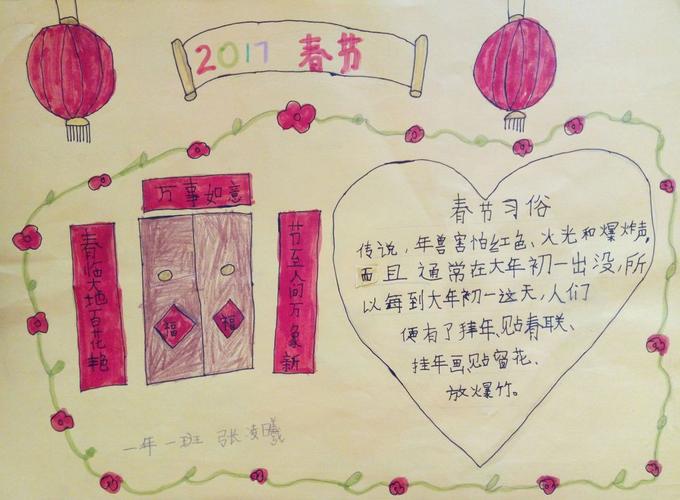 2017 春节
万事如意
春临大地百花艳
节至人间万象新
福 福
春节习俗
传说,年兽害怕红色、火光和爆炸声,
而且通常在大年初一出没,所
以每到大年初一这天,人们
便有了拜年、贴春联、
挂年画、贴窗花、
放爆竹。
一年一班 张凌曦